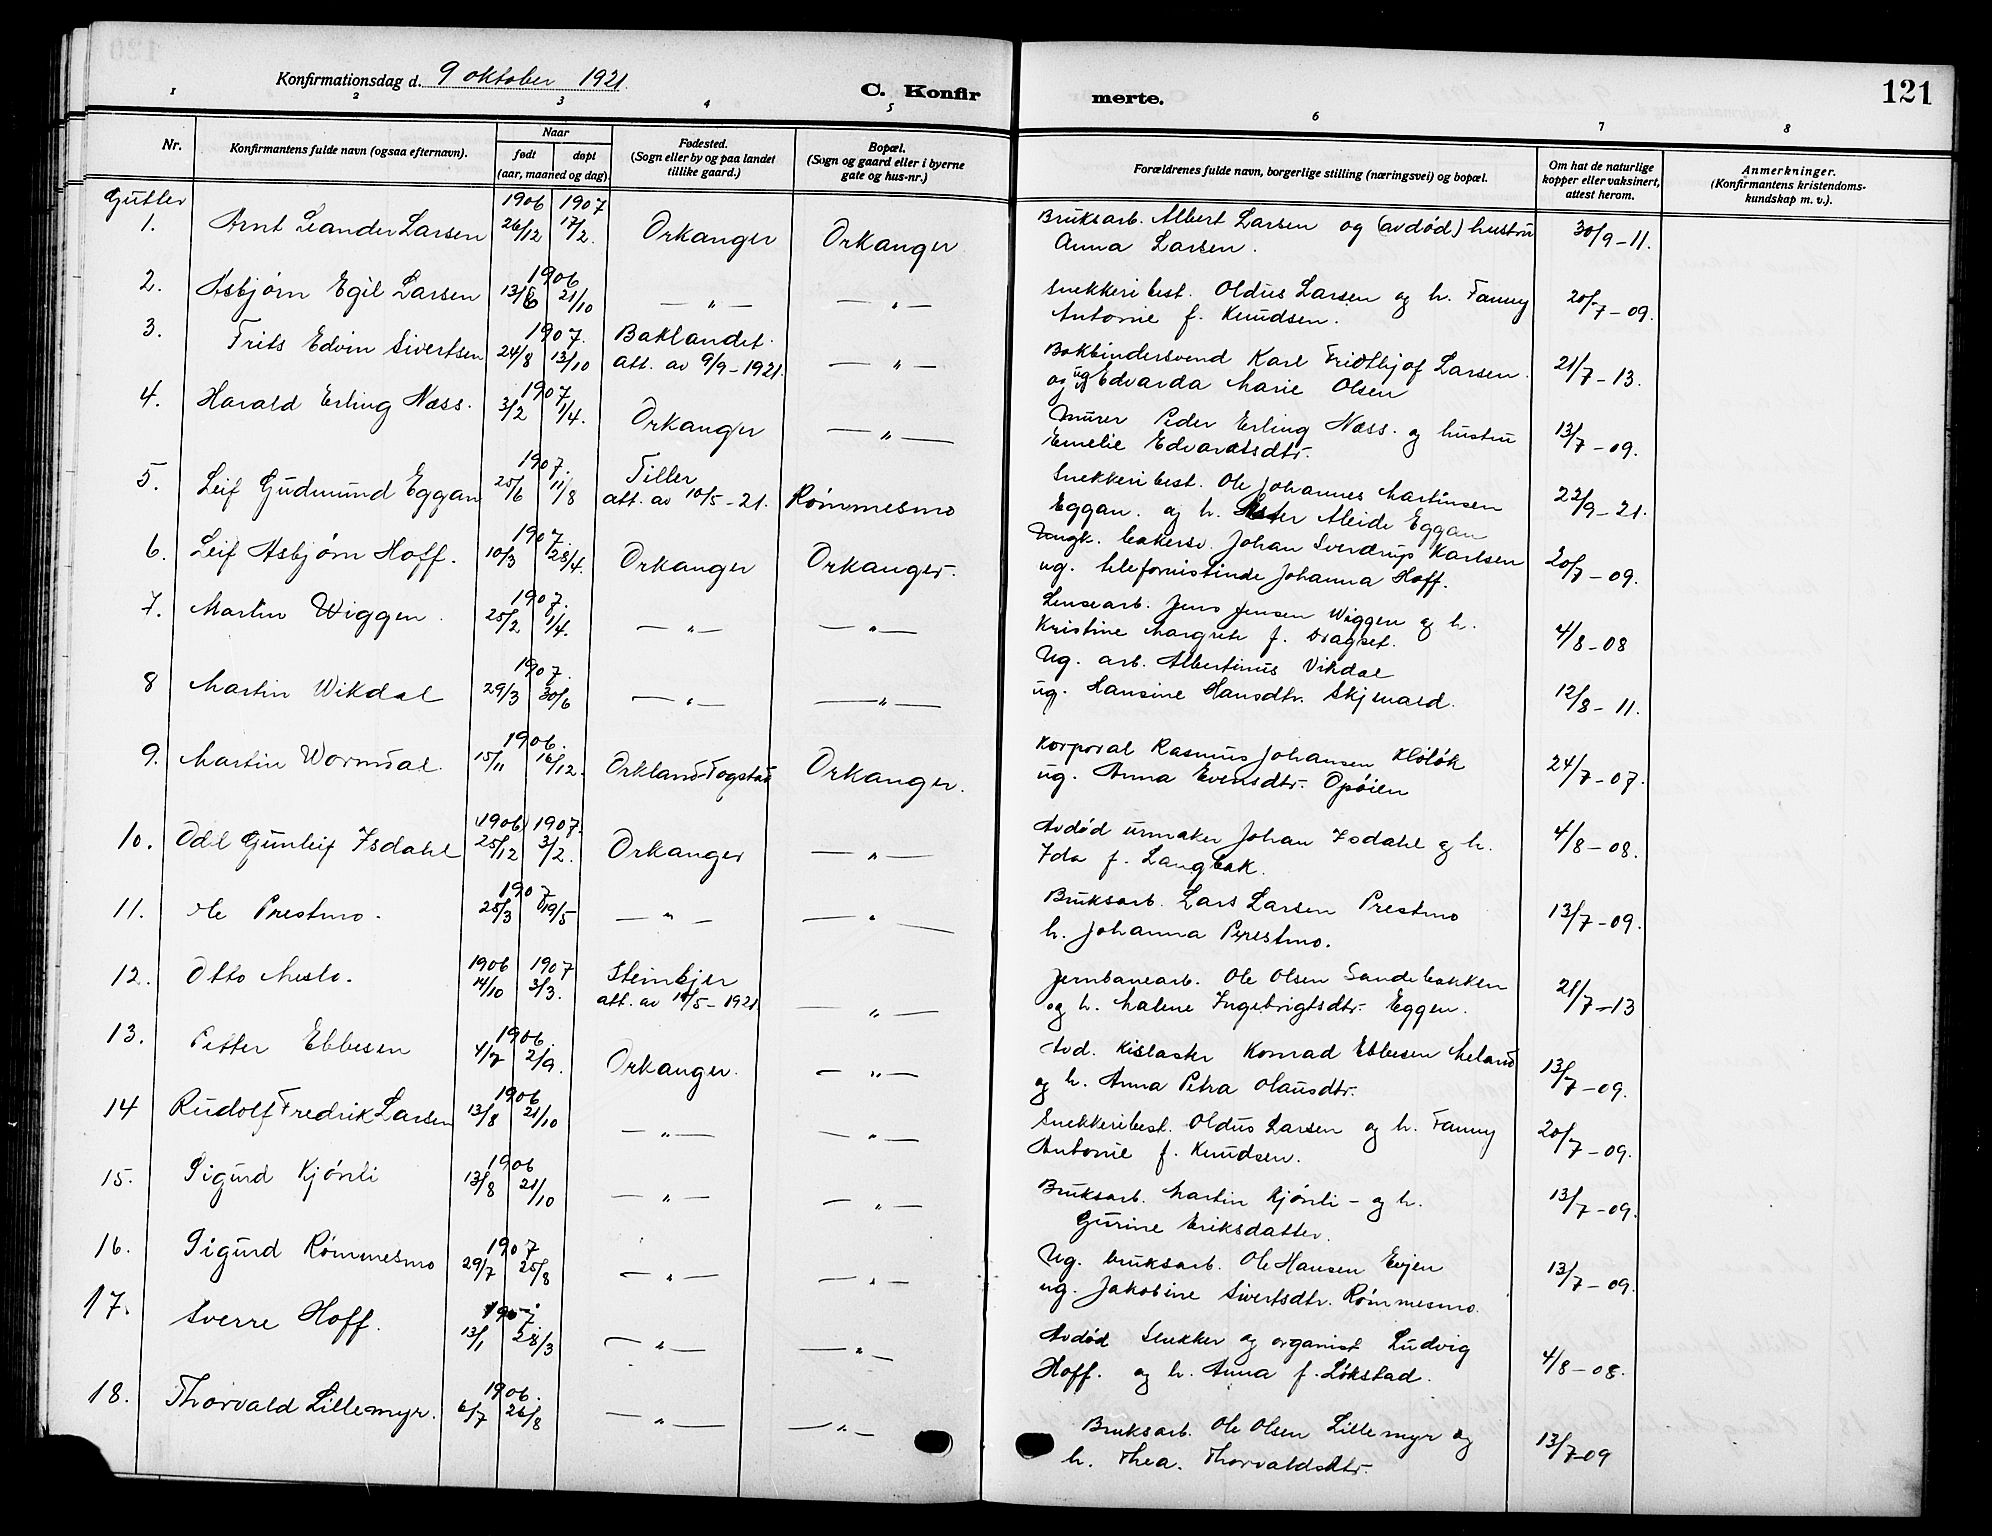 Konfirmationsdag d. 9 oktober 1921.
C. Konfirmerte.
121
1 2 3 4 5 6 7 8
Nr.
Konfirmantens fulde navn (ogsaa efternavn).
Naar
født døpt
(aar, maaned og dag).
Fødested.
(Sogn eller by og paa landet
tillike gaard.)
Bopæl.
(Sogn og gaard eller i byerne
gate og hus-nr.)
Forældrenes fulde navn, borgerlige stilling (næringsvei) og bopæl.
Om hat de naturlige
kopper eller vaksinert,
attest herom.
Anmerkninger.
(Konfirmantens kristendoms-
kundskap m. v.).
Gutter
1. Arnt Leander Larsen 1906 26/12 1907 17/2. Orkanger Orkanger Bruksarb. Albert Larsen og (avdød) hustru
Anna Larsen. 30/9-11.
2. Asbjørn Egil Larsen 1906 13/8 21/10 — " — — " — Snekkeribest. Oldus Larsen og h. Fanny
Antonie f. Knudsen. 20/7-09.
3. Frits Edvin Sivertsen 1907. 24/8 13/10 Baklandet.
att. av 9/9-1921. — " — Bokbindersvend Karl Fridthjof Larsen.
og ug Edvarda Marie Olsen 21/7-13.
4. Harald Erling Næss. 1907 3/2 1/4. Orkanger — " — Murer Peder Erling Næss. og hustru
Emelie Edvardsdtr. 13/7-09.
5. Leif Gudmund Eggan 1907. 25/6 11/8 Tiller
att. av 10/5-21. Rømmesmo Snekkeribest. Ole Johannes Martinsen
Eggan. og h. Aleide Eggan 22/9-21.
6. Leif Asbjørn Hoff. 1907. 10/3 28/4. Orkanger Orkanger. Ungk. bakersv. Johan Sverdrup Karlsen
ug. telefonistinde Johanna Hoff. 20/7-09.
7. Martin Wiggen. 1907. 25/2 1/4. — " — — " — Lensearb. Jens Jensen Wiggen og h.
Kristine Margrete f. Dragset. 4/8-08
8 Martin Wikdal 1907. 29/3 30/6 — " — — " — Ug. arb. Albertinus Vikdal
ug. Hansine Hansdtr. Skjenald. 12/8-11.
9. Martin Wormdal. 1906. 15/11 16/12. Orkland-Fogstad Orkanger. Korporal Rasmus Johansen Kløløk
ug. Anna Evensdtr. Opøien 24/7-07.
10. Odd Gunleif Isdahl 1906 25/12 1907. 3/2. Orkanger — " — Avdød urmaker Johan Isdahl og h.
Ida f. Langbak. 4/8-08.
11. Ole Prestmo. 1907 25/3 19/5 — " — — " — Bruksarb. Lars Larsen Prestmo
h. Johanna Prestmo. 13/7-09.
12. Otto Meslo. 1906 14/10 1907 3/3. Steinkjer
att. av 10/5-1921 — " — Jernbanearb. Ole Olsen Sandebakken
og h. Malene Ingebrigtsdtr. Eggen. 21/7-13
13. Petter Ebbesen 1906. 4/7 2/9. Orkanger. — " — Avd. Konrad Ebbesen Meland
og h. Anna Petra Olausdtr. 13/7-09.
14 Rudolf Fredrik Larsen 1906 13/8 21/10 — " — — " — Snekkeribest. Oldus Larsen og h. Fanny
Antonie f. Knudsen. 20/7-09.
15. Sigurd Kjønli 1906 13/8 21/10 — " — — " — Bruksarb. Martin Kjønli - og h.
Gurine Eriksdatter. 13/7-09.
16. Sigurd Rømmesmo 1907 29/7 25/8 — " — — " — Ug. bruksarb. Ole Hansen Evjen
ug. Jakobine Sivertsdtr. Rømmesmo. 13/7-09.
17. Sverre Hoff. 1907. 13/1 28/3 — " — — " — Avdød Snekker og organist Ludvig
Hoff. og h. Anna f. Løkstad. 4/8-08.
18. Thorvald Lillemyr. 1906. 6/7 26/8 — " — — " — Bruksarb. Ole Olsen Lillemyr og
h. Thea. Thorvaldsdtr. 13/7-09